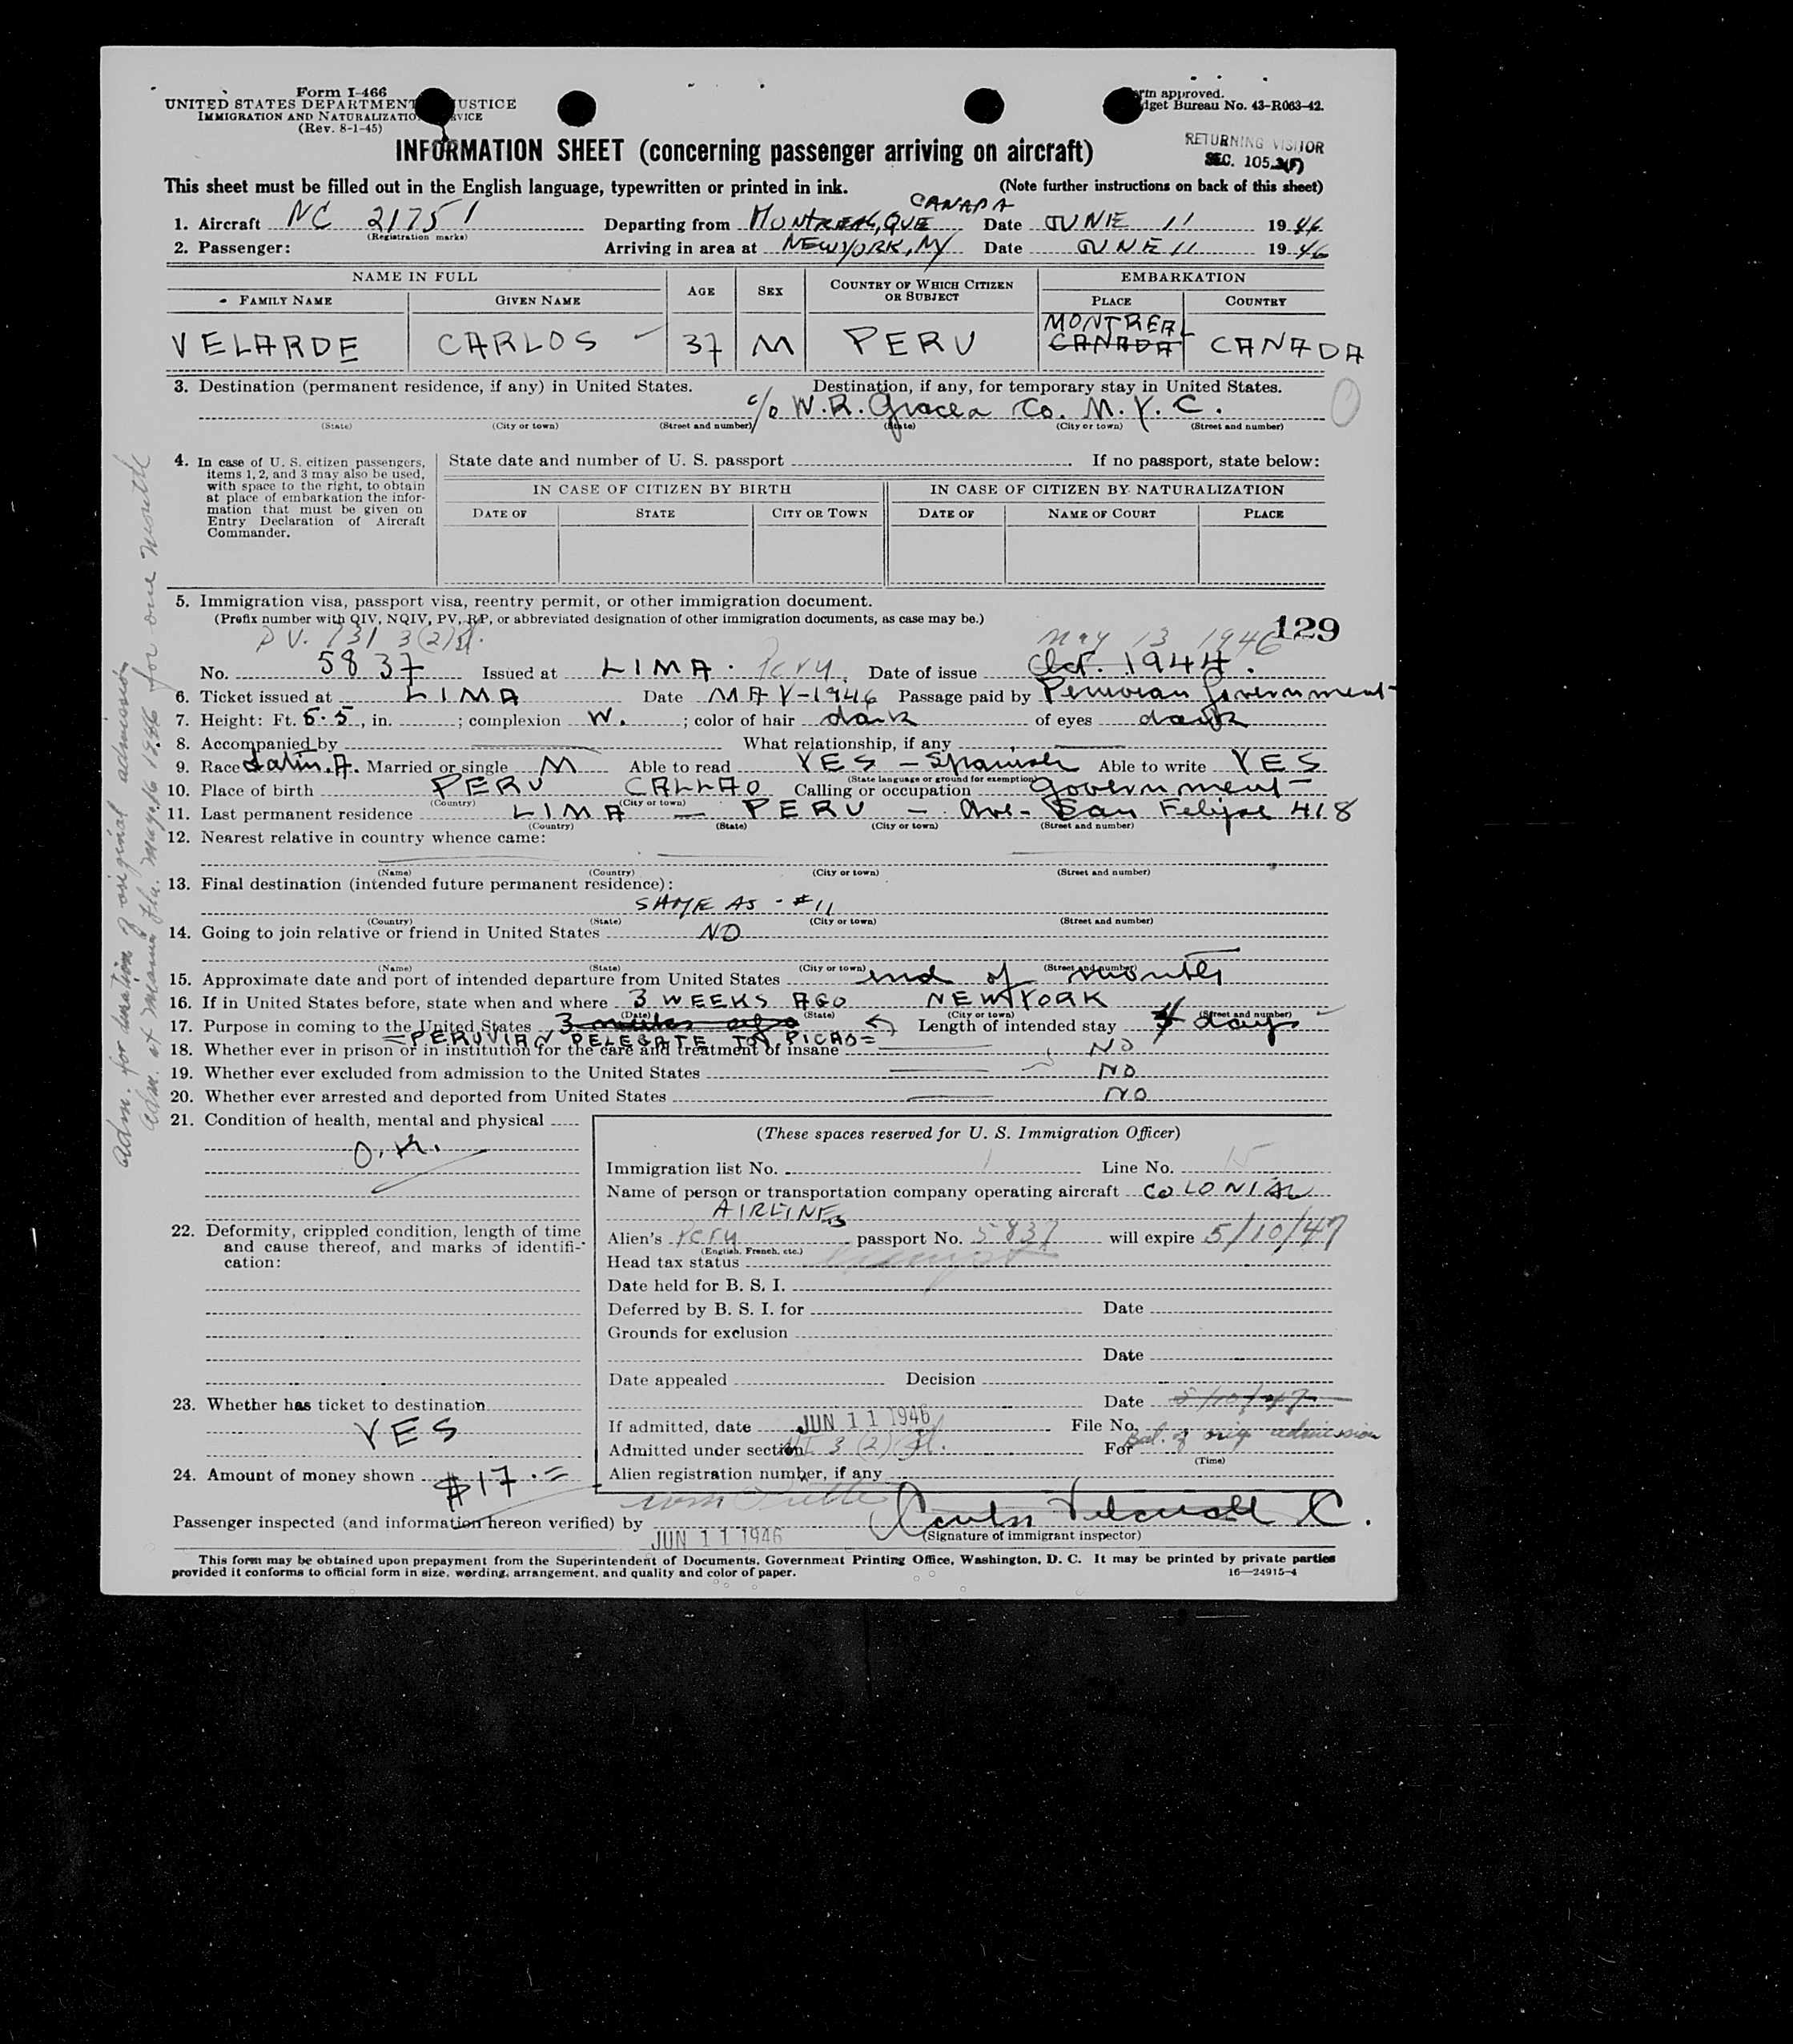 Form I-466
UNITED STATES DEPARTMENT JUSTICE
IMMIGRATION AND NATURALIZATION SERVICE
(Rev. 8-1-45)
Form approved.
Budget Bureau No. 43-R063-42.
RETURNING VISITOR
SEC. 105.3(F)
INFORMATION SHEET (concerning passenger arriving on aircraft)
This sheet must be filled out in the English language, typewritten or printed in ink. (Note further instructions on back of this sheet)
CANADA
1. Aircraft NC 21751 Departing from MONTREAL, QUE Date JUNE 11 1946
(Registration marks)
2. Passenger: Arriving in area at NEW YORK, NY Date JUNE 11 1946
NAME IN FULL EMBARKATION
FAMILY NAME GIVEN NAME AGE SEX COUNTRY OF WHICH CITIZEN OR SUBJECT PLACE COUNTRY
MONTREAL
VELARDE CARLOS 37 M PERU CANADA CANADA
3. Destination (permanent residence, if any) in United States. Destination, if any, for temporary stay in United States.
c/o W.R. Grace a Co. N.Y.C.
(State) (City or town) (Street and number) (State) (City or town) (Street and number)
4. In case of U. S. citizen passengers, items 1, 2, and 3 may also be used, with space to the right, to obtain at place of embarkation the information that must be given on Entry Declaration of Aircraft Commander.
State date and number of U. S. passport If no passport, state below:
IN CASE OF CITIZEN BY BIRTH IN CASE OF CITIZEN BY NATURALIZATION
DATE OF STATE CITY OR TOWN DATE OF NAME OF COURT PLACE
5. Immigration visa, passport visa, reentry permit, or other immigration document.
(Prefix number with QIV, NQIV, PV, RP, or abbreviated designation of other immigration documents, as case may be.)
129
PV. 731 3(2) May 13 1946
No. 5837 Issued at LIMA. Peru Date of issue Oct. 1944.
6. Ticket issued at LIMA Date MAY-1946 Passage paid by Peruvian Government
7. Height: Ft. 5.5, in. ; complexion W. ; color of hair dark of eyes dark
8. Accompanied by What relationship, if any
9. Race Latin.A. Married or single M Able to read YES - Spanish Able to write YES
(State language or ground for exemption)
10. Place of birth PERU CALLAO Calling or occupation Government
(Country) (City or town)
11. Last permanent residence LIMA - PERU - Ave- San Felipe 418
(Country) (State) (City or town) (Street and number)
12. Nearest relative in country whence came:
(Name) (Country) (City or town) (Street and number)
13. Final destination (intended future permanent residence):
SAME AS - #11
(Country) (State) (City or town) (Street and number)
14. Going to join relative or friend in United States NO
(Name) (State) (City or town) (Street and number)
15. Approximate date and port of intended departure from United States end of month
16. If in United States before, state when and where 3 WEEKS AGO NEW YORK
(Date) (State) (City or town) (Street and number)
17. Purpose in coming to the United States 3 weeks ago Length of intended stay days
=PERUVIAN DELEGATE TO PICAO=
18. Whether ever in prison or in institution for the care and treatment of insane NO
19. Whether ever excluded from admission to the United States NO
20. Whether ever arrested and deported from United States NO
21. Condition of health, mental and physical
O.K.
22. Deformity, crippled condition, length of time and cause thereof, and marks of identification:
23. Whether has ticket to destination
YES
24. Amount of money shown $17.=
(These spaces reserved for U. S. Immigration Officer)
Immigration list No. 1 Line No. 15
Name of person or transportation company operating aircraft COLONIAL
AIRLINES
Alien's Peru passport No. 5837 will expire 5/10/47
(English, French, etc.)
Head tax status exempt
Date held for B. S. I.
Deferred by B. S. I. for Date
Grounds for exclusion
Date
Date appealed Decision
Date 5/10/47
If admitted, date JUN 11 1946 File No.
Admitted under section 3 (2) For Bal. of orig admission
(Time)
Alien registration number, if any
Passenger inspected (and information hereon verified) by
JUN 11 1946
(Signature of immigrant inspector)
This form may be obtained upon prepayment from the Superintendent of Documents, Government Printing Office, Washington, D. C. It may be printed by private parties
provided it conforms to official form in size, wording, arrangement, and quality and color of paper. 16—24915-4
Adm. for duration of original admission
adm. at Miami Fla. May 16 1946 for one month